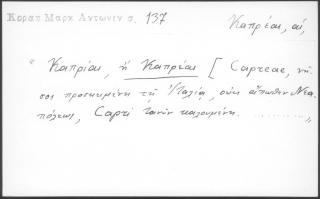 Κοραη Μαρκ Αντωνιν σ. 137
Καπρέαι, αἱ,
" Καπρίαι, ἤ Καπρέαι [ Capreae, νῆ-
σοι προσκειμένη τῇ Ἰταλίᾳ, οὐκ ἄπωθεν Νεα-
πόλεως, Capri τανῦν καλουμένη. ............ "